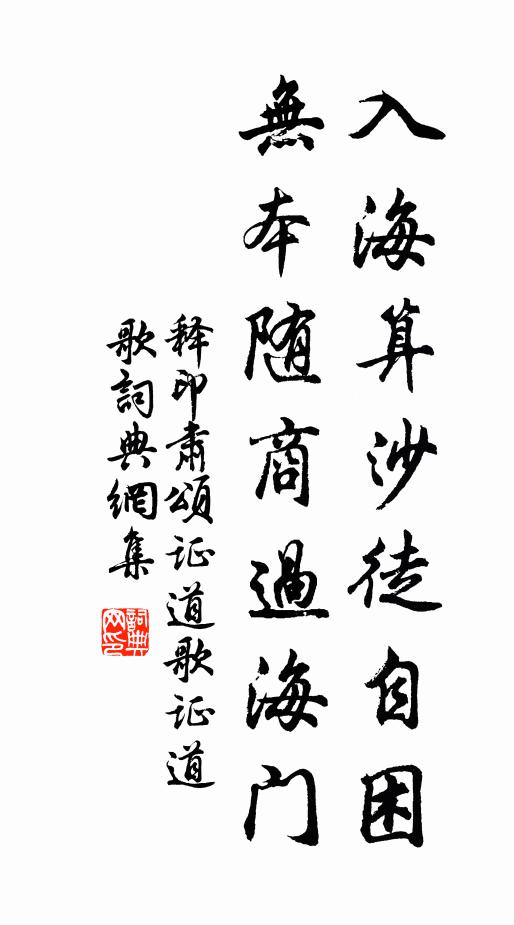 入海算沙徒自困
無本随商過海门
释印肃頌证道歌证道
歌詞典網集
詞典
网印